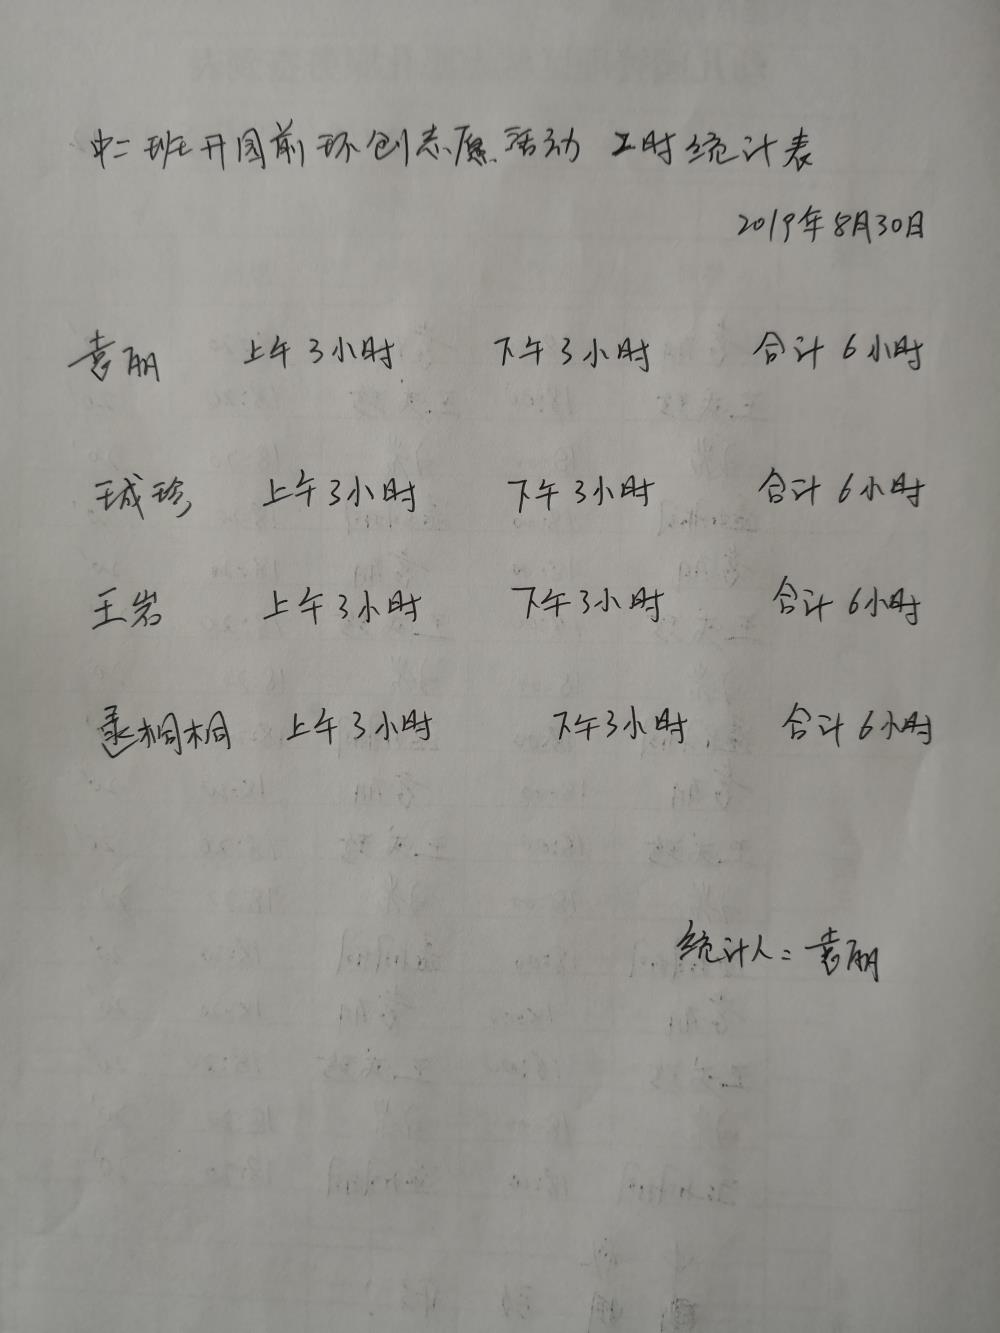 中二班开园前环创志愿活动 工时统计表
2019年8月30日
袁丽 上午3小时 下午3小时 合计6小时
王成珍 上午3小时 下午3小时 合计6小时
王岩 上午3小时 下午3小时 合计6小时
桐桐 上午3小时 下午3小时 合计6小时
统计人：袁丽